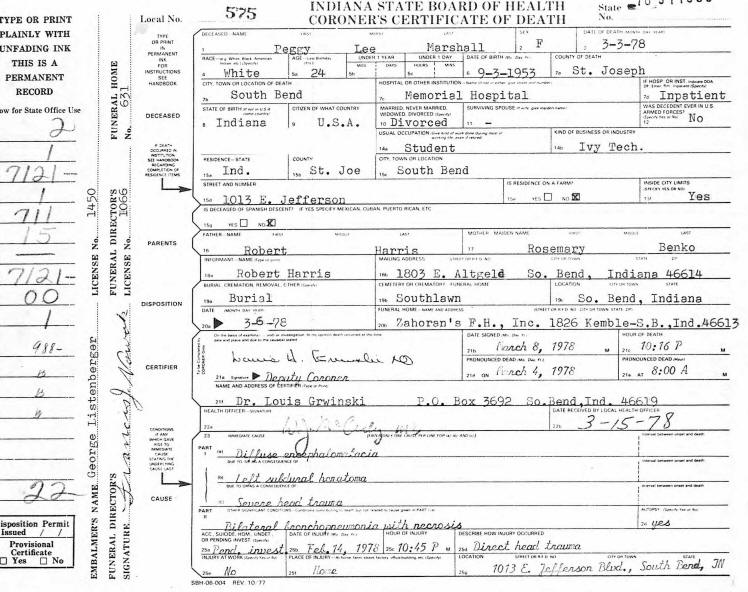 TYPE OR PRINT
PLAINLY WITH
UNFADING INK
THIS IS A
PERMANENT
RECORD
INDIANA STATE BOARD OF HEALTH
CORONER'S CERTIFICATE OF DEATH
Local No. 575
State
No.
TYPE
OR PRINT
IN
PERMANENT
INK
FOR
INSTRUCTIONS
SEE
HANDBOOK
DECEASED—NAME FIRST MIDDLE LAST SEX DATE OF DEATH
1 Peggy Lee Marshall 2 F 3 3-3-78
RACE AGE UNDER 1 YEAR UNDER 1 DAY DATE OF BIRTH COUNTY OF DEATH
4 White 5a 24 6 9-3-1953 7a St. Joseph
CITY, TOWN OR LOCATION OF DEATH HOSPITAL OR OTHER INSTITUTION IF HOSP. OR INST.
7b South Bend 7c Memorial Hospital 7d Inpatient
DECEASED
STATE OF BIRTH CITIZEN OF WHAT COUNTRY MARRIED, NEVER MARRIED, WIDOWED, DIVORCED SURVIVING SPOUSE WAS DECEDENT EVER IN U.S. ARMED FORCES?
8 Indiana 9 U.S.A. 10 Divorced 11 - 12 No
USUAL OCCUPATION KIND OF BUSINESS OR INDUSTRY
14a Student 14b Ivy Tech.
RESIDENCE—STATE COUNTY CITY, TOWN OR LOCATION
15a Ind. 15b St. Joe 15c South Bend
STREET AND NUMBER IS RESIDENCE ON A FARM? INSIDE CITY LIMITS
15d 1013 E. Jefferson 15e YES NO X 15f Yes
IS DECEASED OF SPANISH DESCENT? IF YES SPECIFY MEXICAN, CUBAN, PUERTO RICAN, ETC
15g YES NO X
PARENTS
FATHER—NAME FIRST MIDDLE LAST MOTHER—MAIDEN NAME FIRST MIDDLE LAST
16 Robert Harris 17 Rosemary Benko
INFORMANT—NAME MAILING ADDRESS
18a Robert Harris 18b 1803 E. Altgeld So. Bend, Indiana 46614
DISPOSITION
BURIAL, CREMATION, REMOVAL, OTHER CEMETERY OR CREMATORY—FUNERAL HOME LOCATION CITY OR TOWN STATE
19a Burial 19b Southlawn 19c So. Bend, Indiana
DATE FUNERAL HOME—NAME AND ADDRESS
20a 3-6-78 20b Zahoran's F.H., Inc. 1826 Kemble-S.B.,Ind.46613
CERTIFIER
DATE SIGNED HOUR OF DEATH
21b March 8, 1978 M 21c 10:16 P M
PRONOUNCED DEAD PRONOUNCED DEAD
21a Signature Deputy Coroner 21d ON March 4, 1978 21e AT 8:00 A M
NAME AND ADDRESS OF CERTIFIER
21f Dr. Louis Grwinski P.O. Box 3692 So.Bend,Ind. 46619
HEALTH OFFICER—SIGNATURE DATE RECEIVED BY LOCAL HEALTH OFFICER
22a 22b 3-15-78
CONDITIONS
IF ANY
WHICH GAVE
RISE TO
IMMEDIATE
CAUSE
STATING THE
UNDERLYING
CAUSE LAST
CAUSE
23 IMMEDIATE CAUSE Interval between onset and death
PART I (a) Diffuse encephalomalacia
DUE TO OR AS A CONSEQUENCE OF Interval between onset and death
(b) Left subdural hematoma
DUE TO OR AS A CONSEQUENCE OF Interval between onset and death
(c) Severe head trauma
PART II OTHER SIGNIFICANT CONDITIONS AUTOPSY
Bilateral bronchopneumonia with necrosis 24 yes
ACC, SUICIDE, HOM, UNDET, OR PENDING INVEST. DATE OF INJURY HOUR OF INJURY DESCRIBE HOW INJURY OCCURRED
25a Pend. invest. 25b Feb.14, 1978 25c 10:45 P M 25d Direct head trauma
INJURY AT WORK PLACE OF INJURY LOCATION STREET OR R.F.D. NO. CITY OR TOWN STATE
25e No 25f Home 25g 1013 E. Jefferson Blvd., South Bend, IN
SBH-06-004 REV. 10/77
FUNERAL HOME No. 631
EMBALMER'S NAME George Listenberger LICENSE No. 1450
FUNERAL DIRECTOR'S SIGNATURE FUNERAL DIRECTOR'S LICENSE No. 1066
ow for State Office Use
2
1
7121-
1
711
15
7121-
00
1
988-
22
isposition Permit
Issued / /
Provisional
Certificate
Yes No